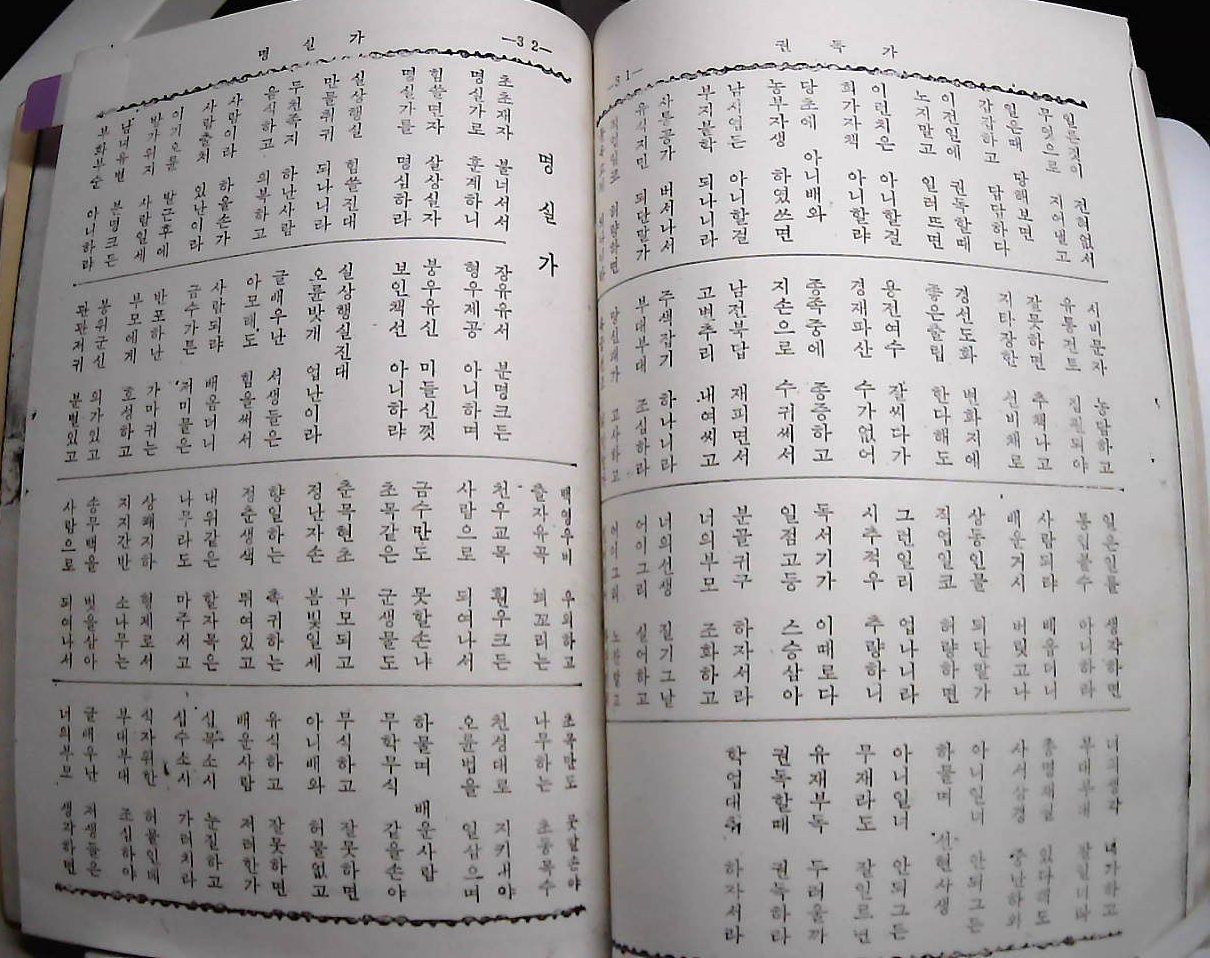 권 독 가
—31—
일른것이 전혀없서
무엇으로 지어낼고
일은때 당해보면
감감하고 답답하다
이전일에 권독할때
노지말고 일러뜨면
아니할걸
아니할랴
당초에 아니배와
농부자생 하였쓰면
아니할걸
되나니라
버서나서
유식지만 되단말가
시비문자 농담하고
잘못하면 추책나고
선비채로
변화지에
한다해도
용전여수 잘씨다가
경재파산 수가없어
종족중에 종증하고
지손으로 수귀써서
남전북답 재피면서
고변추리 내여씨고
주색잡기 하나니라
부대부대 조심하라
고사하고
일은인물 생각하면
사람되랴 배우더니
배운거시 버릿고나
상등인물 되단말가
직업일코 허랑하면
그런일리 업나니라
시추적우 추량하니
독서기가 이때로다
일점고등 스승삼아
분골귀구 하자서라
너의부모 조화하고
너의선생 질기그날
어이그리 실어하고
너의생각 내가하고
부대부대
총명재질 있다해도
사서삼경 중단하와
아니일너 안되그든
하물며 선현사생
아니일너 안되그든
무재라도 잘일르면
유재부독 두려울까
권독할때 권독하라
학업대취 하자서라
—32—
명 실 가
명 실 가
초초재자 불너서서
명실가로 훈계하니
힘쓸면자 살상실자
명실가를 명심하라
실상행실 힘쓸진대
만물취귀 되나니라
하난사람
음식하고 의복하고
사람이라 하올손가
사람출처 있난이라
이기오륜 발근후에
사람일세
남녀유별 분명크든
부화부순 아니하랴
장유유서 분명크든
형우제공 아니하며
붕우유신 미들신낏
보인책선 아니하랴
실상행실진대
오륜밧개 업난이라
글배우난 서생들은
아모래도 힘을써서
사람되랴 배움더니
금수가튼 저미물은
반포하난 가마귀는
부모에게 효성하고
봉위군신 의가있고
관관저귀 분별있고
우의하고
출자유곡 꾀꼬리는
천우교목 훤우크든
사람으로 되여나서
금수만도 못할손냐
초목같은 군생물도
춘목현초 부모되고
정난자손 봄빛일세
향일하는 촉귀하는
정춘생색 뛰여있고
내위같은 할자목은
나무라도 마주서고
상쾌지하 형제로서
지지간반 소나무는
송무백을 벗을삼아
사람으로 되여나서
초목만도 못할손야
나무하는 초동목수
천성대로 지키내야
오륜법을 일삼으며
하물며 배운사람
무학무식 같을손야
무식하고 잘못하면
아니배와 허물없고
유식하고 잘못하면
배운사람 저러한가
십목소시 눈질하고
십수소시 가러치라
식자위한 허물인데
부대부대 조심하야
글배우난 저생들은
너의부모 생각하면